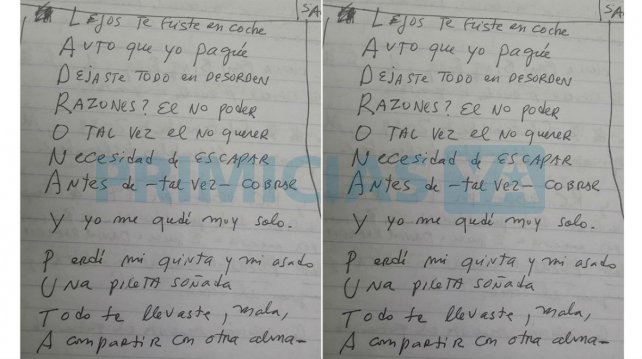 SA
LEJOS TE FUISTE en coche
AUTO que yo pagué
DEJASTE TODO en DESORDEN
RAZONES? El no poder
O TAL VEZ el no querer
Necesidad de ESCAPAR
Antes de -tal vez- COBRAR
Y yo me quedé muy solo.
Perdí mi quinta y mi asado
UNA PILETA SOÑADA
Todo te llevaste, mala,
A compartir con otra alma-
SA
LEJOS TE FUISTE en coche
AUTO que yo pagué
DEJASTE TODO en DESORDEN
RAZONES? El no poder
O TAL VEZ el no querer
Necesidad de ESCAPAR
Antes de -tal vez- COBRAR
Y yo me quedé muy solo.
Perdí mi quinta y mi asado
UNA PILETA SOÑADA
Todo te llevaste, mala,
A compartir con otra alma-
PRIMICIAS YA